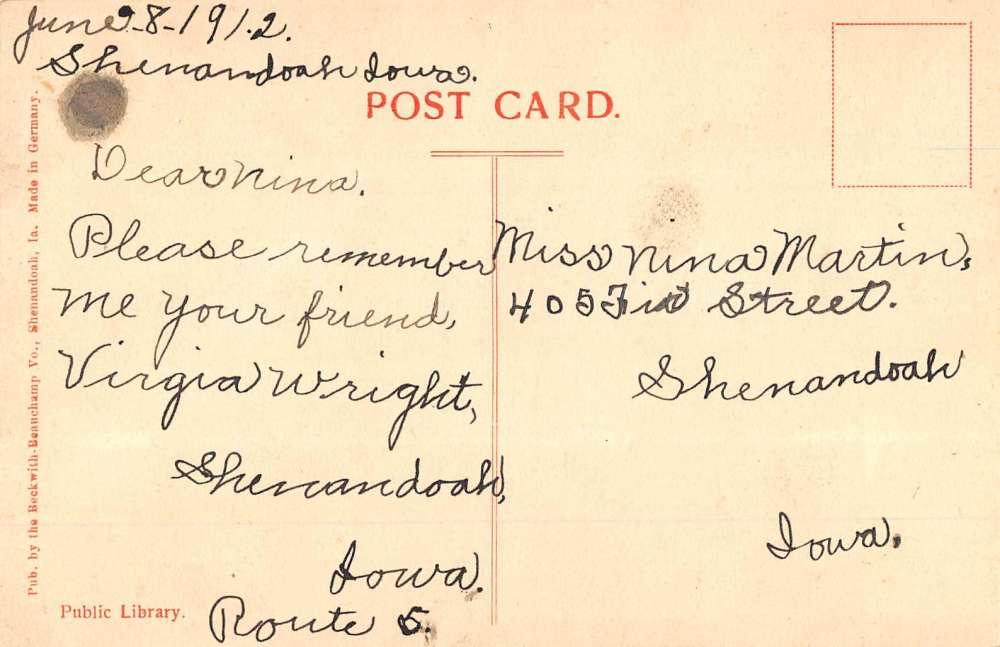 June-8-1912.
Shenandoah Iowa.
POST CARD.
Dear Nina.
Please remember
me your friend,
Virgia Wright,
Shenandoah,
Iowa.
Route 5.
Miss Nina Martin,
405 Street.
Shenandoah
Iowa.
Public Library.
Pub. by the Beckwith-Beauchamp Vo., Shenandoah, Ia. Made in Germany.